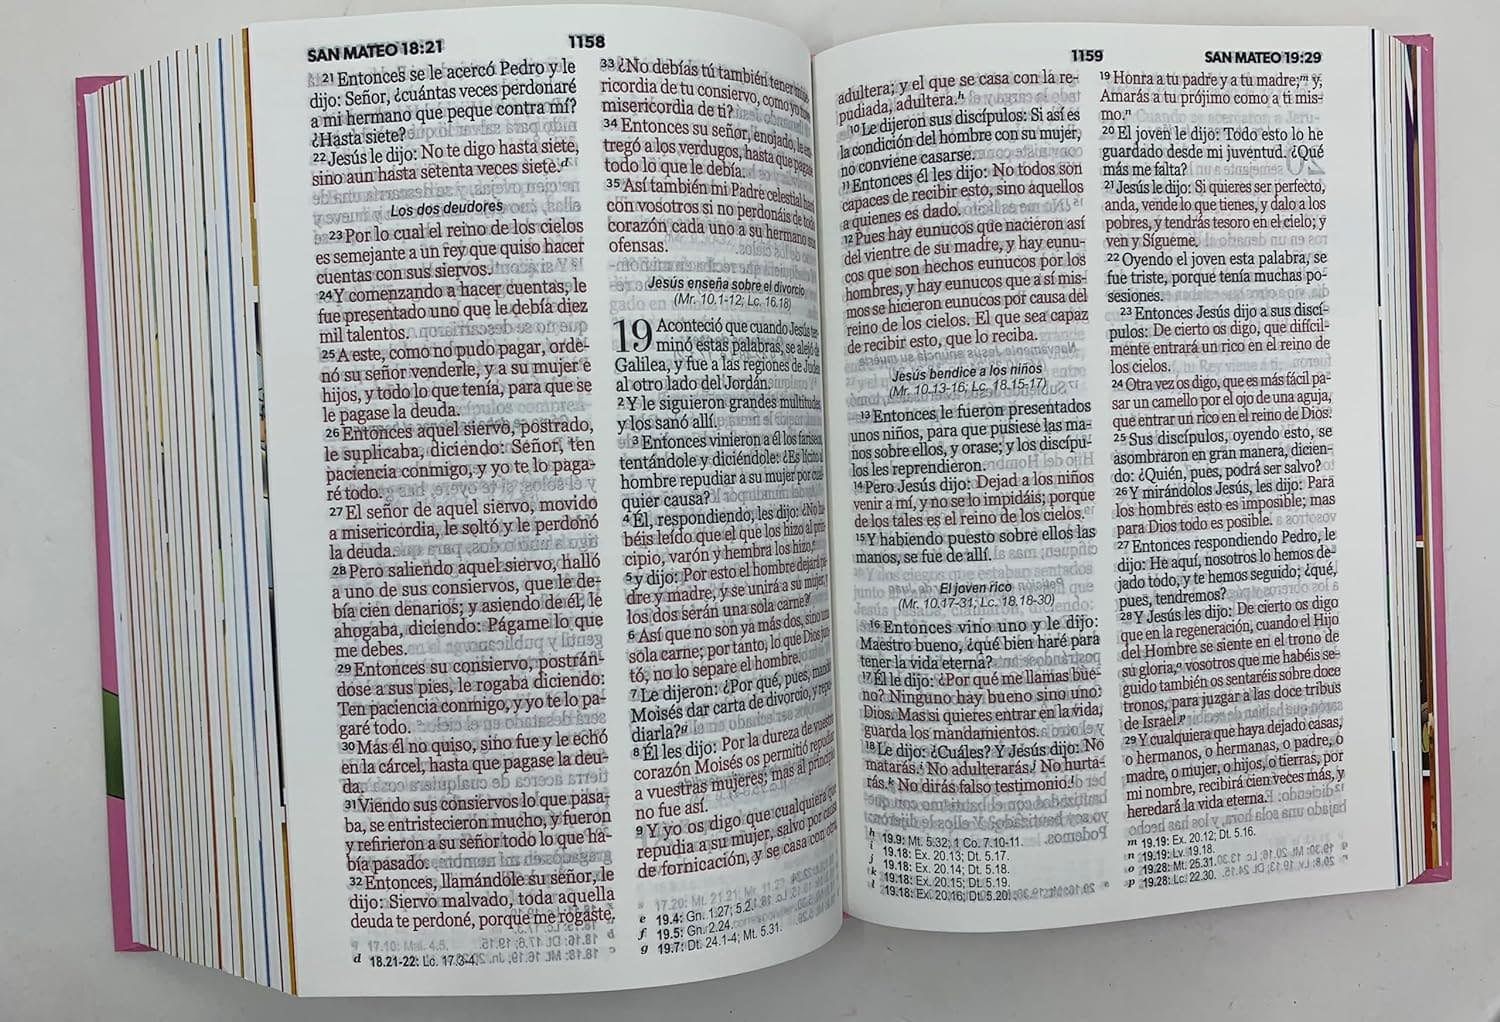 SAN MATEO 18:21
1158
21 Entonces se le acercó Pedro y le
dijo: Señor, ¿cuántas veces perdonaré
a mi hermano que peque contra mí?
¿Hasta siete?
22 Jesús le dijo: No te digo hasta siete,
sino aun hasta setenta veces siete.d
Los dos deudores
23 Por lo cual el reino de los cielos
es semejante a un rey que quiso hacer
cuentas con sus siervos.
24 Y comenzando a hacer cuentas, le
fue presentado uno que le debía diez
mil talentos.
25 A este, como no pudo pagar, orde-
nó su señor venderle, y a su mujer e
hijos, y todo lo que tenía, para que se
le pagase la deuda.
26 Entonces aquel siervo, postrado,
le suplicaba, diciendo: Señor, ten
paciencia conmigo, y yo te lo paga-
ré todo.
27 El señor de aquel siervo, movido
a misericordia, le soltó y le perdonó
la deuda.
28 Pero saliendo aquel siervo, halló
a uno de sus consiervos, que le de-
bía cien denarios; y asiendo de él, le
ahogaba, diciendo: Págame lo que
me debes.
29 Entonces su consiervo, postrán-
dose a sus pies, le rogaba diciendo:
Ten paciencia conmigo, y yo te lo pa-
garé todo.
30 Más él no quiso, sino fue y le echó
en la cárcel, hasta que pagase la deu-
da.
31 Viendo sus consiervos lo que pasa-
ba, se entristecieron mucho, y fueron
y refirieron a su señor todo lo que ha-
bía pasado.
32 Entonces, llamándole su señor, le
dijo: Siervo malvado, toda aquella
deuda te perdoné, porque me rogaste.
d 18.21-22: Lc. 17.3-4.
33 ¿No debías tú también tener mise-
ricordia de tu consiervo, como yo tuve
misericordia de ti?
34 Entonces su señor, enojado, le en-
tregó a los verdugos, hasta que pagase
todo lo que le debía.
35 Así también mi Padre celestial hará
con vosotros si no perdonáis de todo
corazón cada uno a su hermano sus
ofensas.
Jesús enseña sobre el divorcio
(Mr. 10.1-12; Lc. 16.18)
19 Aconteció que cuando Jesús ter-
minó estas palabras, se alejó de
Galilea, y fue a las regiones de Judea
al otro lado del Jordán.
2 Y le siguieron grandes multitudes,
y los sanó allí.
3 Entonces vinieron a él los fariseos,
tentándole y diciéndole: ¿Es lícito al
hombre repudiar a su mujer por cual-
quier causa?
4 Él, respondiendo, les dijo: ¿No ha-
béis leído que el que los hizo al prin-
cipio, varón y hembra los hizo,e
5 y dijo: Por esto el hombre dejará pa-
dre y madre, y se unirá a su mujer, y
los dos serán una sola carne?f
6 Así que no son ya más dos, sino una
sola carne; por tanto, lo que Dios jun-
tó, no lo separe el hombre.
7 Le dijeron: ¿Por qué, pues, mandó
Moisés dar carta de divorcio, y repu-
diarla?g
8 Él les dijo: Por la dureza de vuestro
corazón Moisés os permitió repudiar
a vuestras mujeres; mas al principio
no fue así.
9 Y yo os digo que cualquiera que
repudia a su mujer, salvo por causa
de fornicación, y se casa con otra,
e 19.4: Gn. 1.27; 5.2.
f 19.5: Gn. 2.24.
g 19.7: Dt. 24.1-4; Mt. 5.31.
1159
SAN MATEO 19:29
adultera; y el que se casa con la re-
pudiada, adultera.h
10 Le dijeron sus discípulos: Si así es
la condición del hombre con su mujer,
no conviene casarse.
11 Entonces él les dijo: No todos son
capaces de recibir esto, sino aquellos
a quienes es dado.
12 Pues hay eunucos que nacieron así
del vientre de su madre, y hay eunu-
cos que son hechos eunucos por los
hombres, y hay eunucos que a sí mis-
mos se hicieron eunucos por causa del
reino de los cielos. El que sea capaz
de recibir esto, que lo reciba.
Jesús bendice a los niños
(Mr. 10.13-16; Lc. 18.15-17)
13 Entonces le fueron presentados
unos niños, para que pusiese las ma-
nos sobre ellos, y orase; y los discípu-
los les reprendieron.
14 Pero Jesús dijo: Dejad a los niños
venir a mí, y no se lo impidáis; porque
de los tales es el reino de los cielos.
15 Y habiendo puesto sobre ellos las
manos, se fue de allí.
El joven rico
(Mr. 10.17-31; Lc. 18.18-30)
16 Entonces vino uno y le dijo:
Maestro bueno, ¿qué bien haré para
tener la vida eterna?
17 Él le dijo: ¿Por qué me llamas bue-
no? Ninguno hay bueno sino uno:
Dios. Mas si quieres entrar en la vida,
guarda los mandamientos.
18 Le dijo: ¿Cuáles? Y Jesús dijo: No
matarás.i No adulterarás.j No hurta-
rás.k No dirás falso testimonio.l
h 19.9: Mt. 5.32; 1 Co. 7.10-11.
i 19.18: Ex. 20.13; Dt. 5.17.
j 19.18: Ex. 20.14; Dt. 5.18.
k 19.18: Ex. 20.15; Dt. 5.19.
l 19.18: Ex. 20.16; Dt. 5.20.
19 Honra a tu padre y a tu madre;m y,
Amarás a tu prójimo como a ti mis-
mo.n
20 El joven le dijo: Todo esto lo he
guardado desde mi juventud. ¿Qué
más me falta?
21 Jesús le dijo: Si quieres ser perfecto,
anda, vende lo que tienes, y dalo a los
pobres, y tendrás tesoro en el cielo; y
ven y Sígueme.
22 Oyendo el joven esta palabra, se
fue triste, porque tenía muchas po-
sesiones.
23 Entonces Jesús dijo a sus discí-
pulos: De cierto os digo, que difícil-
mente entrará un rico en el reino de
los cielos.
24 Otra vez os digo, que es más fácil pa-
sar un camello por el ojo de una aguja,
que entrar un rico en el reino de Dios.
25 Sus discípulos, oyendo esto, se
asombraron en gran manera, dicien-
do: ¿Quién, pues, podrá ser salvo?
26 Y mirándolos Jesús, les dijo: Para
los hombres esto es imposible; mas
para Dios todo es posible.
27 Entonces respondiendo Pedro, le
dijo: He aquí, nosotros lo hemos de-
jado todo, y te hemos seguido; ¿qué,
pues, tendremos?
28 Y Jesús les dijo: De cierto os digo
que en la regeneración, cuando el Hijo
del Hombre se siente en el trono de
su gloria,o vosotros que me habéis se-
guido también os sentaréis sobre doce
tronos, para juzgar a las doce tribus
de Israel.p
29 Y cualquiera que haya dejado casas,
o hermanos, o hermanas, o padre, o
madre, o mujer, o hijos, o tierras, por
mi nombre, recibirá cien veces más, y
heredará la vida eterna.
m 19.19: Ex. 20.12; Dt. 5.16.
n 19.19: Lv. 19.18.
o 19.28: Mt. 25.31.
p 19.28: Lc. 22.30.